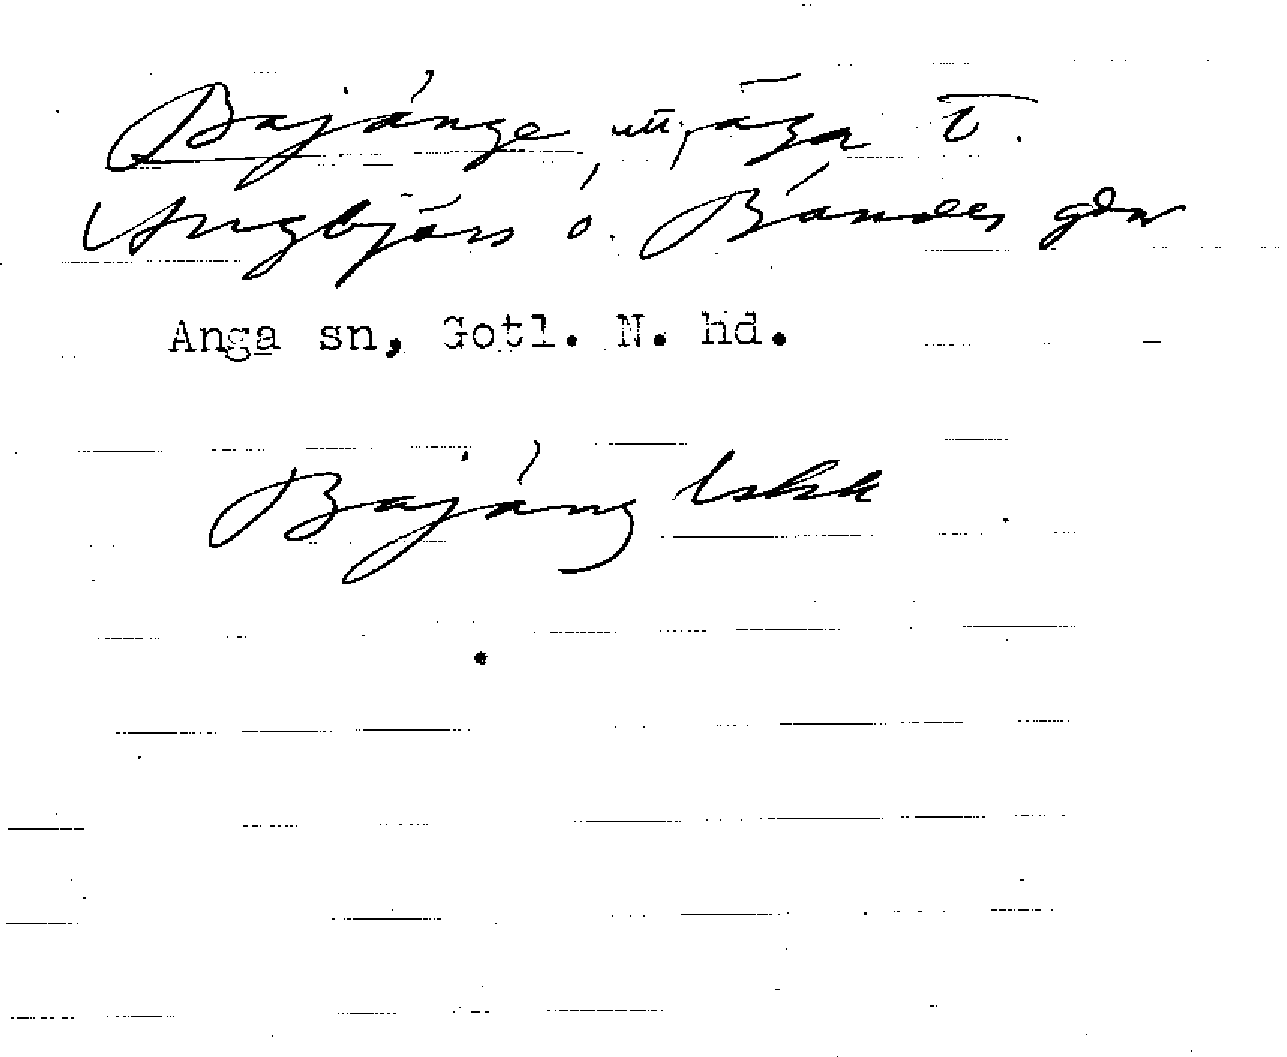 Bajänge, utjäga t.
Angbjärs o. Bändes gdr
Anga sn, Gotl. N. hd.
Bajäng lskk